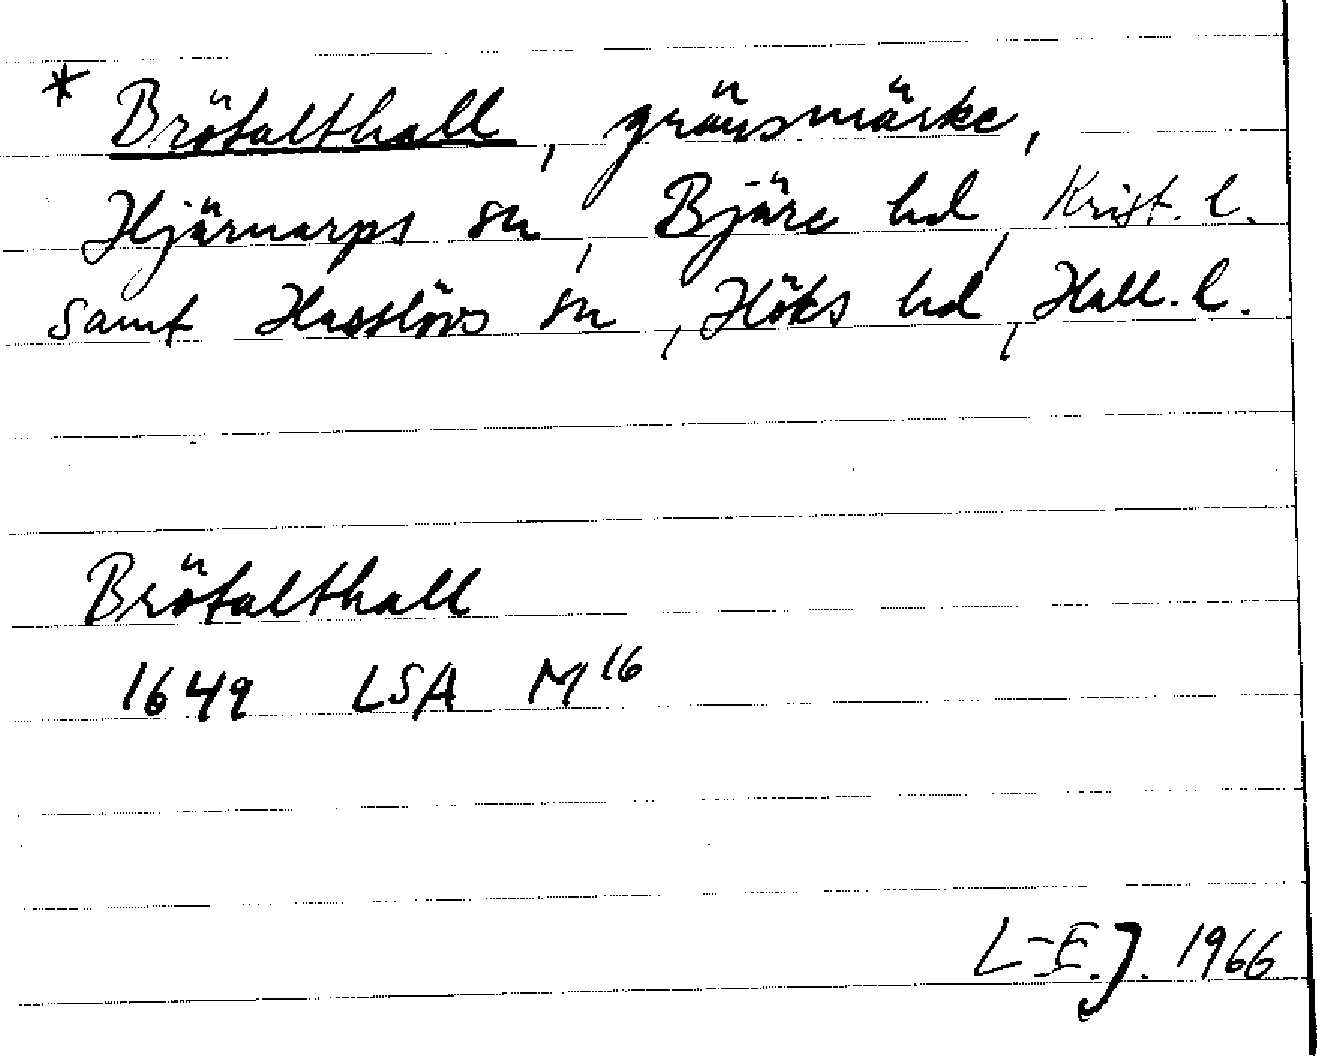 * Brötalthall, gränsmärke,
Hjärnarps sn, Bjäre hd, Krist. l.
samt Hasslövs sn, Höks hd, Hall. l.
Brötalthall
1649 LSA M16
L-E.J. 1966